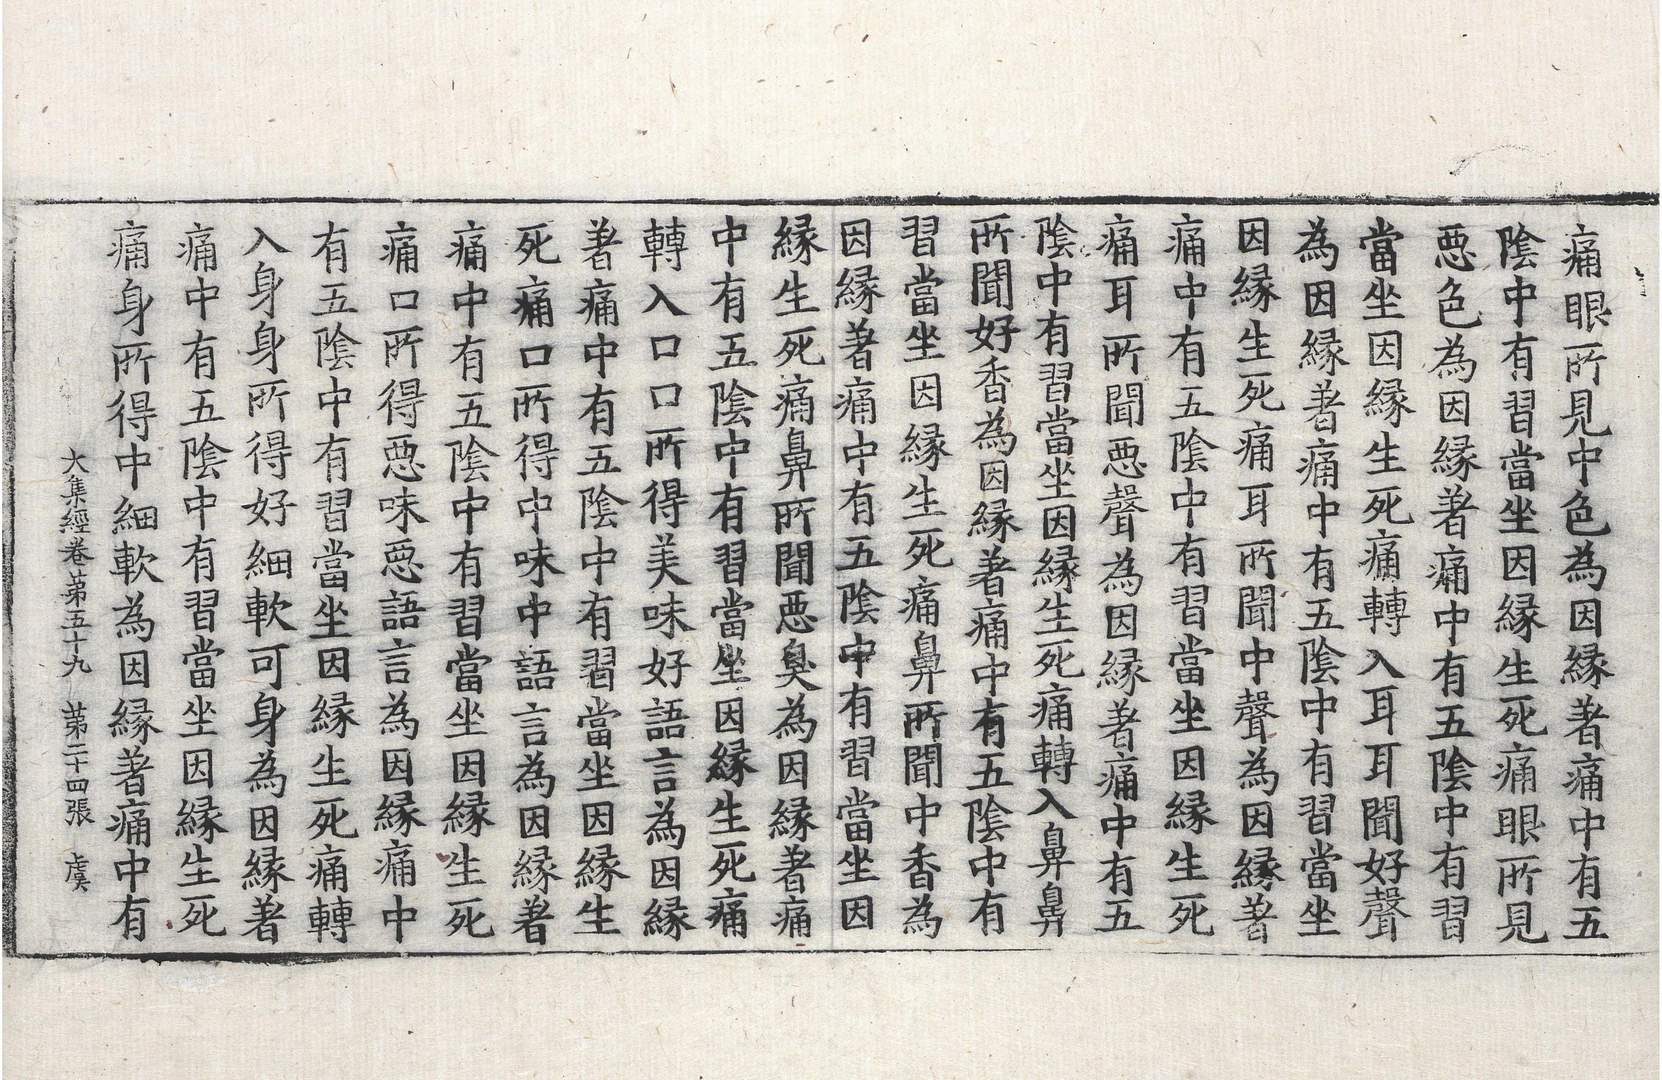 痛眼所見中色為因縁著痛中有五
陰中有習當坐因縁生死痛眼所見
惡色為因縁著痛中有五陰中有習
當坐因縁生死痛轉入耳耳聞好聲
為因縁著痛中有五陰中有習當坐
因縁生死痛耳所聞中聲為因縁著
痛中有五陰中有習當坐因縁生死
痛耳所聞惡聲為因縁著痛中有五
陰中有習當坐因縁生死痛轉入鼻鼻
所聞好香為因縁著痛中有五陰中有
習當坐因縁生死痛鼻所聞中香為
因縁著痛中有五陰中有習當坐因
縁生死痛鼻所聞惡臭為因縁著痛
中有五陰中有習當坐因縁生死痛
轉入口口所得美味好語言為因縁
著痛中有五陰中有習當坐因縁生
死痛口所得中味中語言為因縁著
痛中有五陰中有習當坐因縁生死
痛口所得惡味惡語言為因縁痛中
有五陰中有習當坐因縁生死痛轉
入身身所得好細軟可身為因縁著
痛中有五陰中有習當坐因縁生死
痛身所得中細軟為因縁著痛中有
大集經卷第五十九 第二十四張 虞